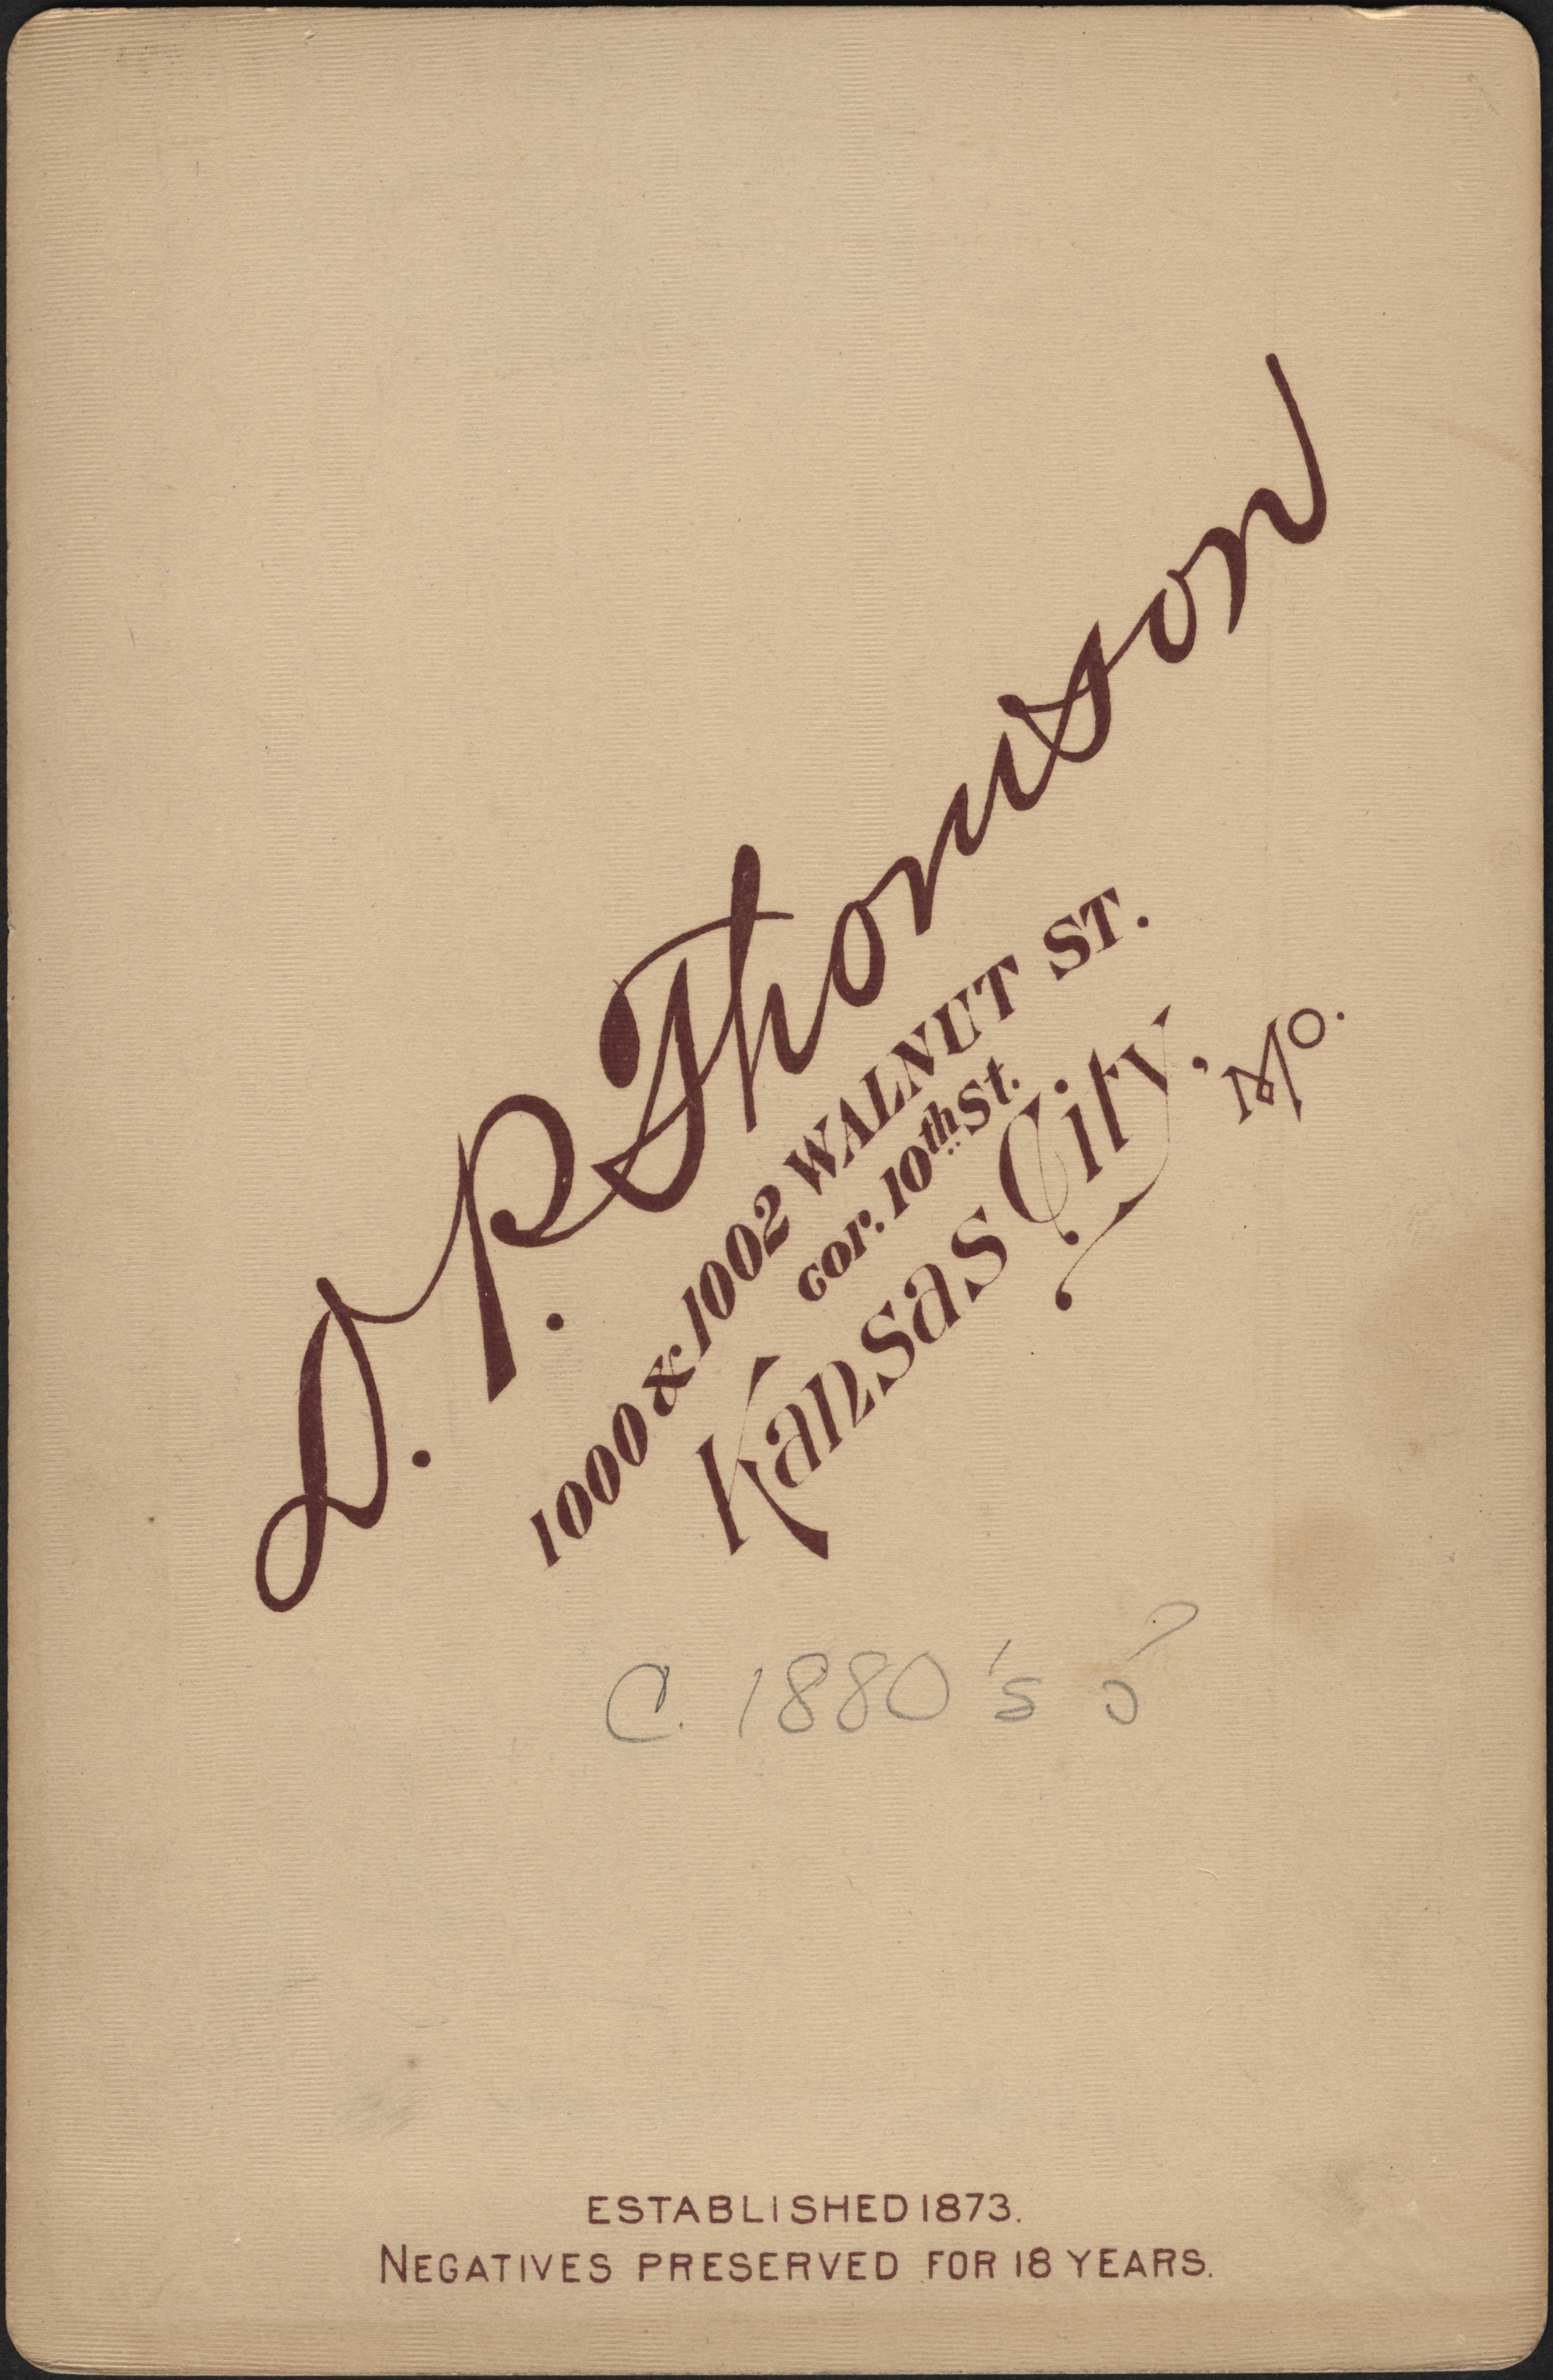 D. P. Thomson
1000 & 1002 WALNUT ST.
cor. 10th St.
Kansas City, Mo.
C. 1880's ?
ESTABLISHED 1873.
NEGATIVES PRESERVED FOR 18 YEARS.